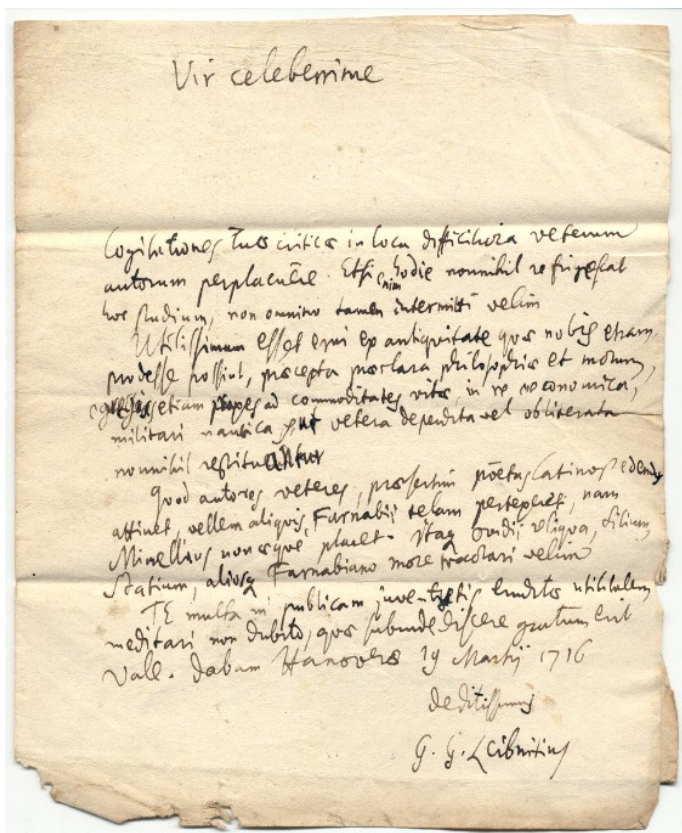 Vir celeberrime
Cogitationes tuæ criticæ in loca difficiliora veterum
autorum perplacuêre. Etsi enim hodie nonnihil refrigescat
hoc studium, non omnino tamen intermitti velim
Utilissimum esset erui ex antiquitate quæ nobis etiam
prodesse possint, præcepta præclara philosophiæ et morum,
etiam ad commoditates vitæ, in re œconomica,
militari nautica, vetera deperdita vel obliterata
nonnihil
Quod autores veteres, præsertim poëtas latinos edendos
attinet, vellem aliquis Farnabii telam pertexeret, nam
Minellius non æque placet. Itaq Ovidii reliqua, Silium,
Statium, aliosq Farnabiano more tractari velim
TE multa in publicam utilitatem
meditari non dubito, quæ subinde discere gratum erit
Vale. dabam Hanoveræ 19 Martii 1716
deditissimus
G. G. Leibnitius